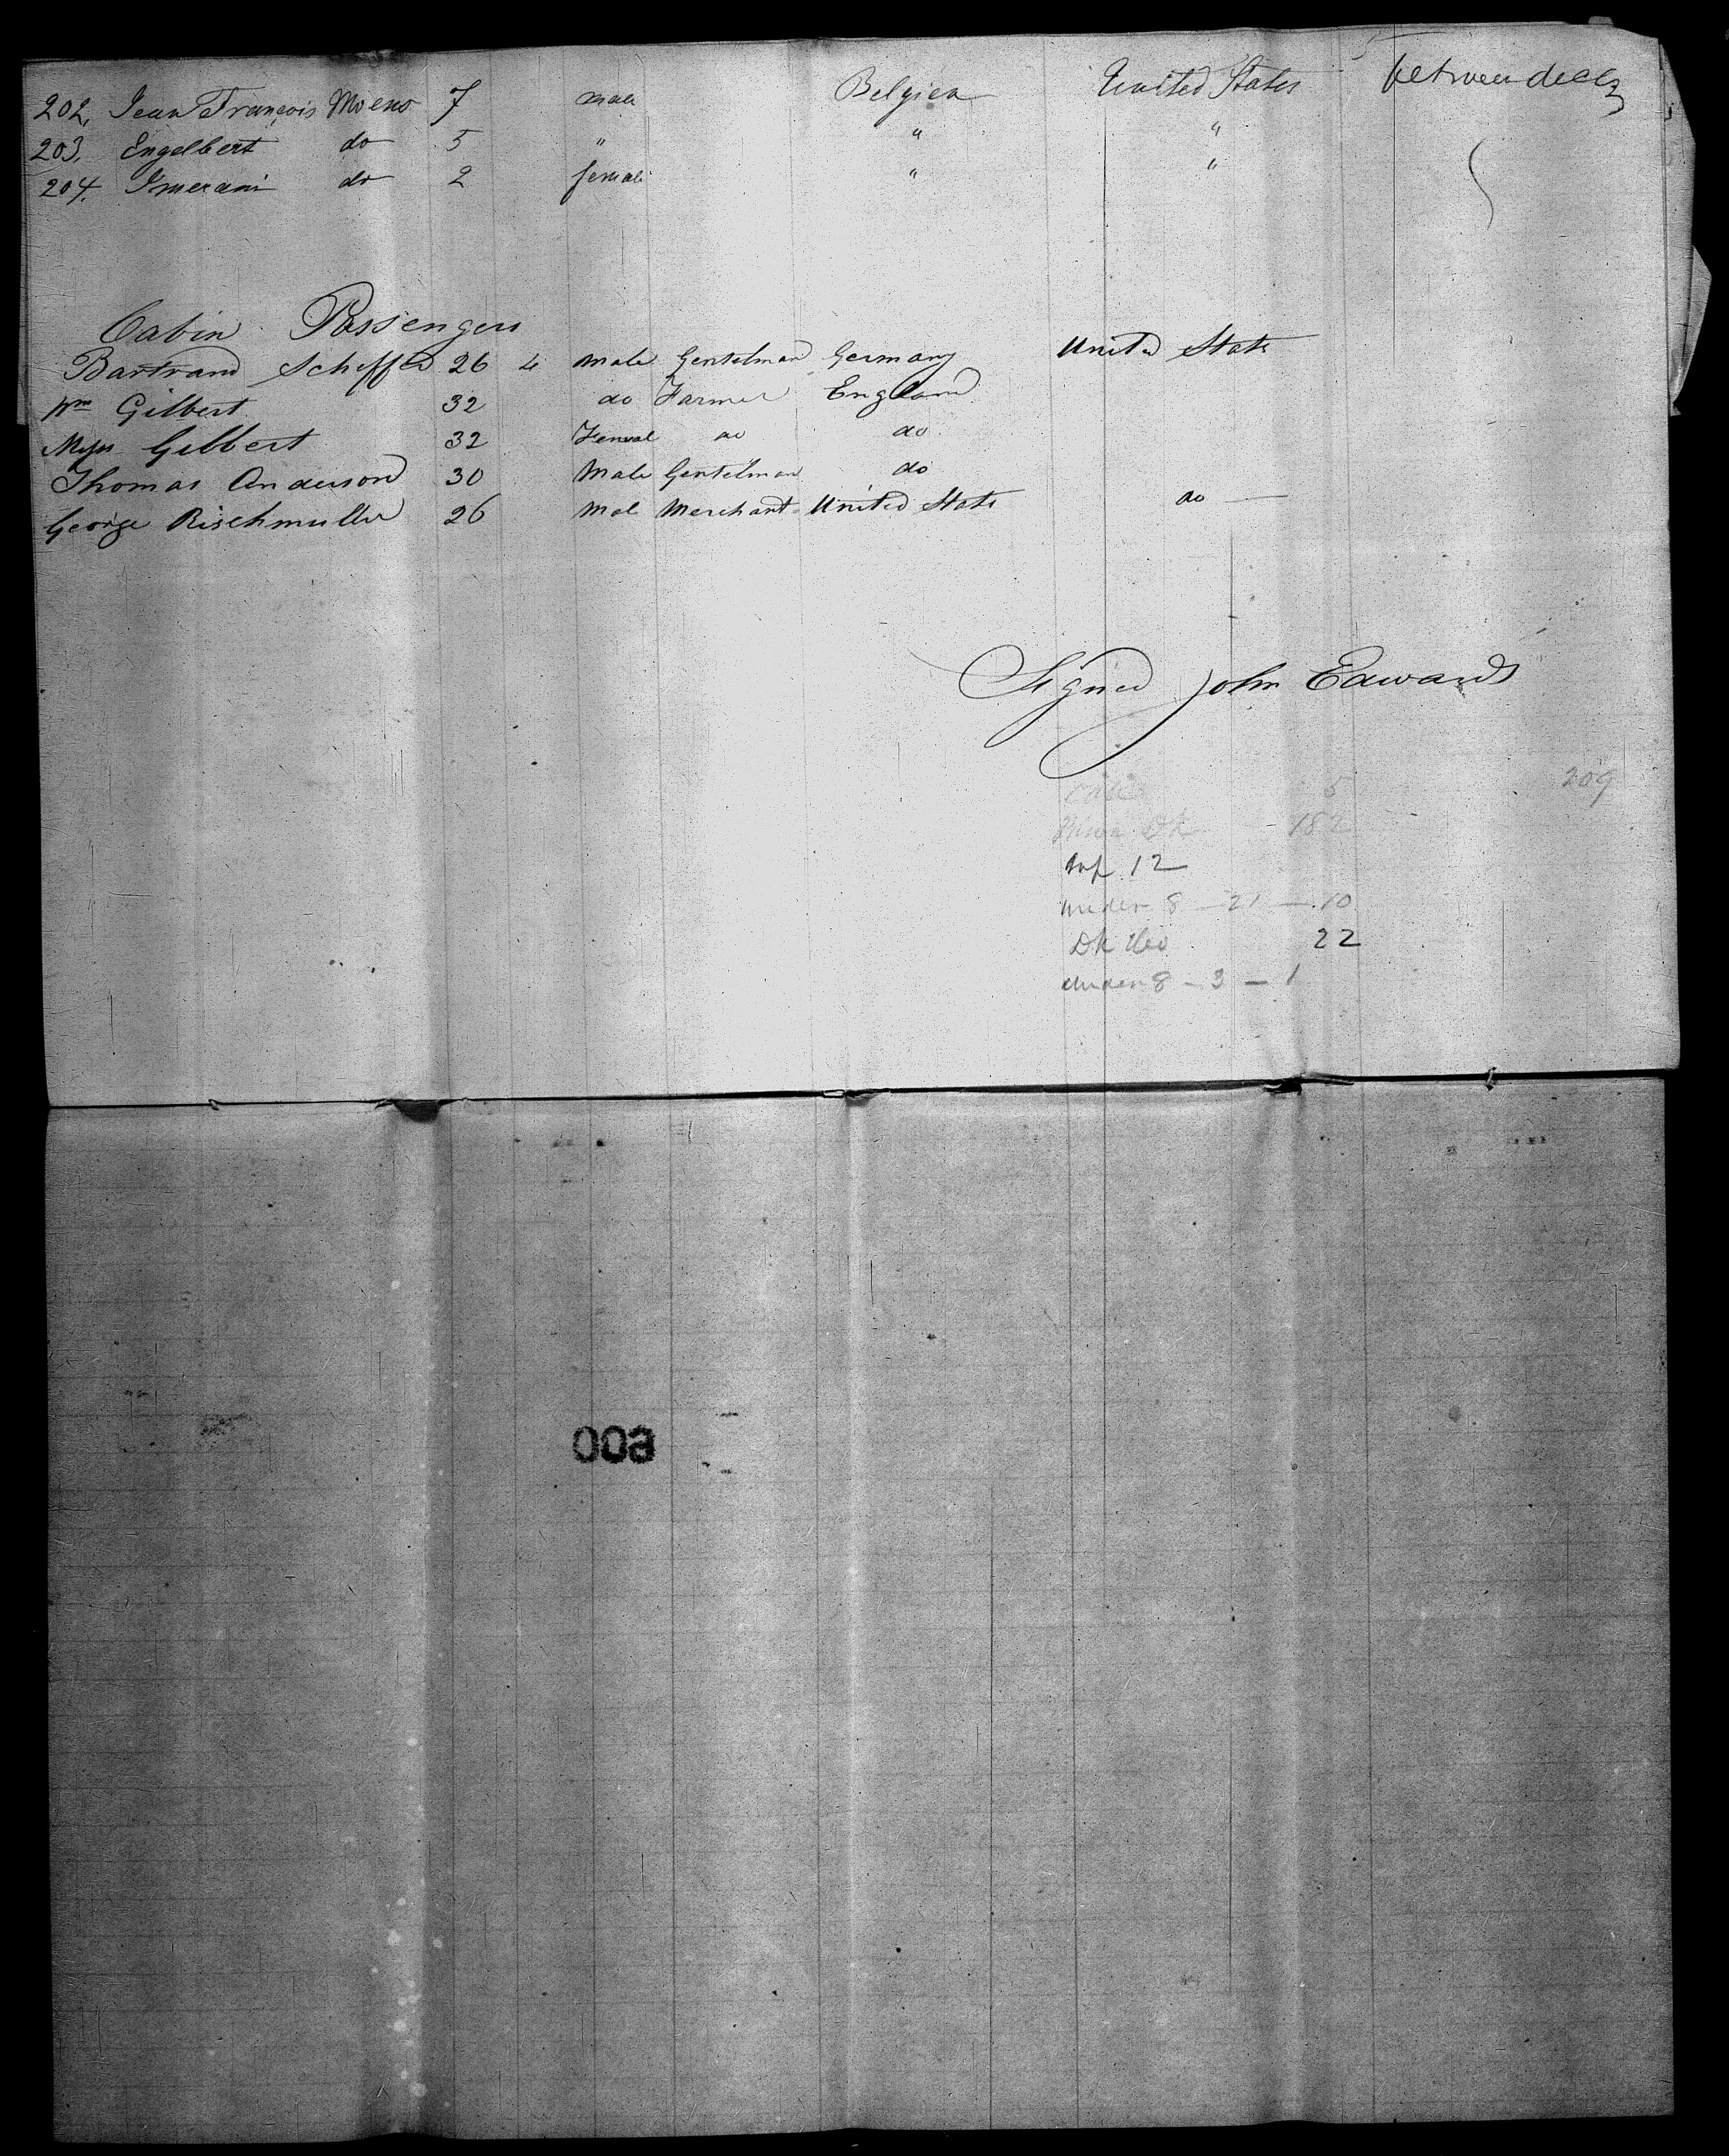 202. Jean François Moens 7 male Belgien United States between decks
203. Engelbert do 5 " " "
204. Imerani do 2 female " "
Cabin Passengers
Bartrand Scheffer 26 4 Male Gentelman Germany United State
Wm Gilbert 32 do Farmer England
Gilbert 32 Femal do do
Thomas Anderson 30 Male Gentelman do
George Rischmuller 26 Mal Merchant United State do
Signed John Edwards
5 209
Dk 182
Inf 12
under 8 - 21 - 10
Dk 22
under 8 - 3 - 1